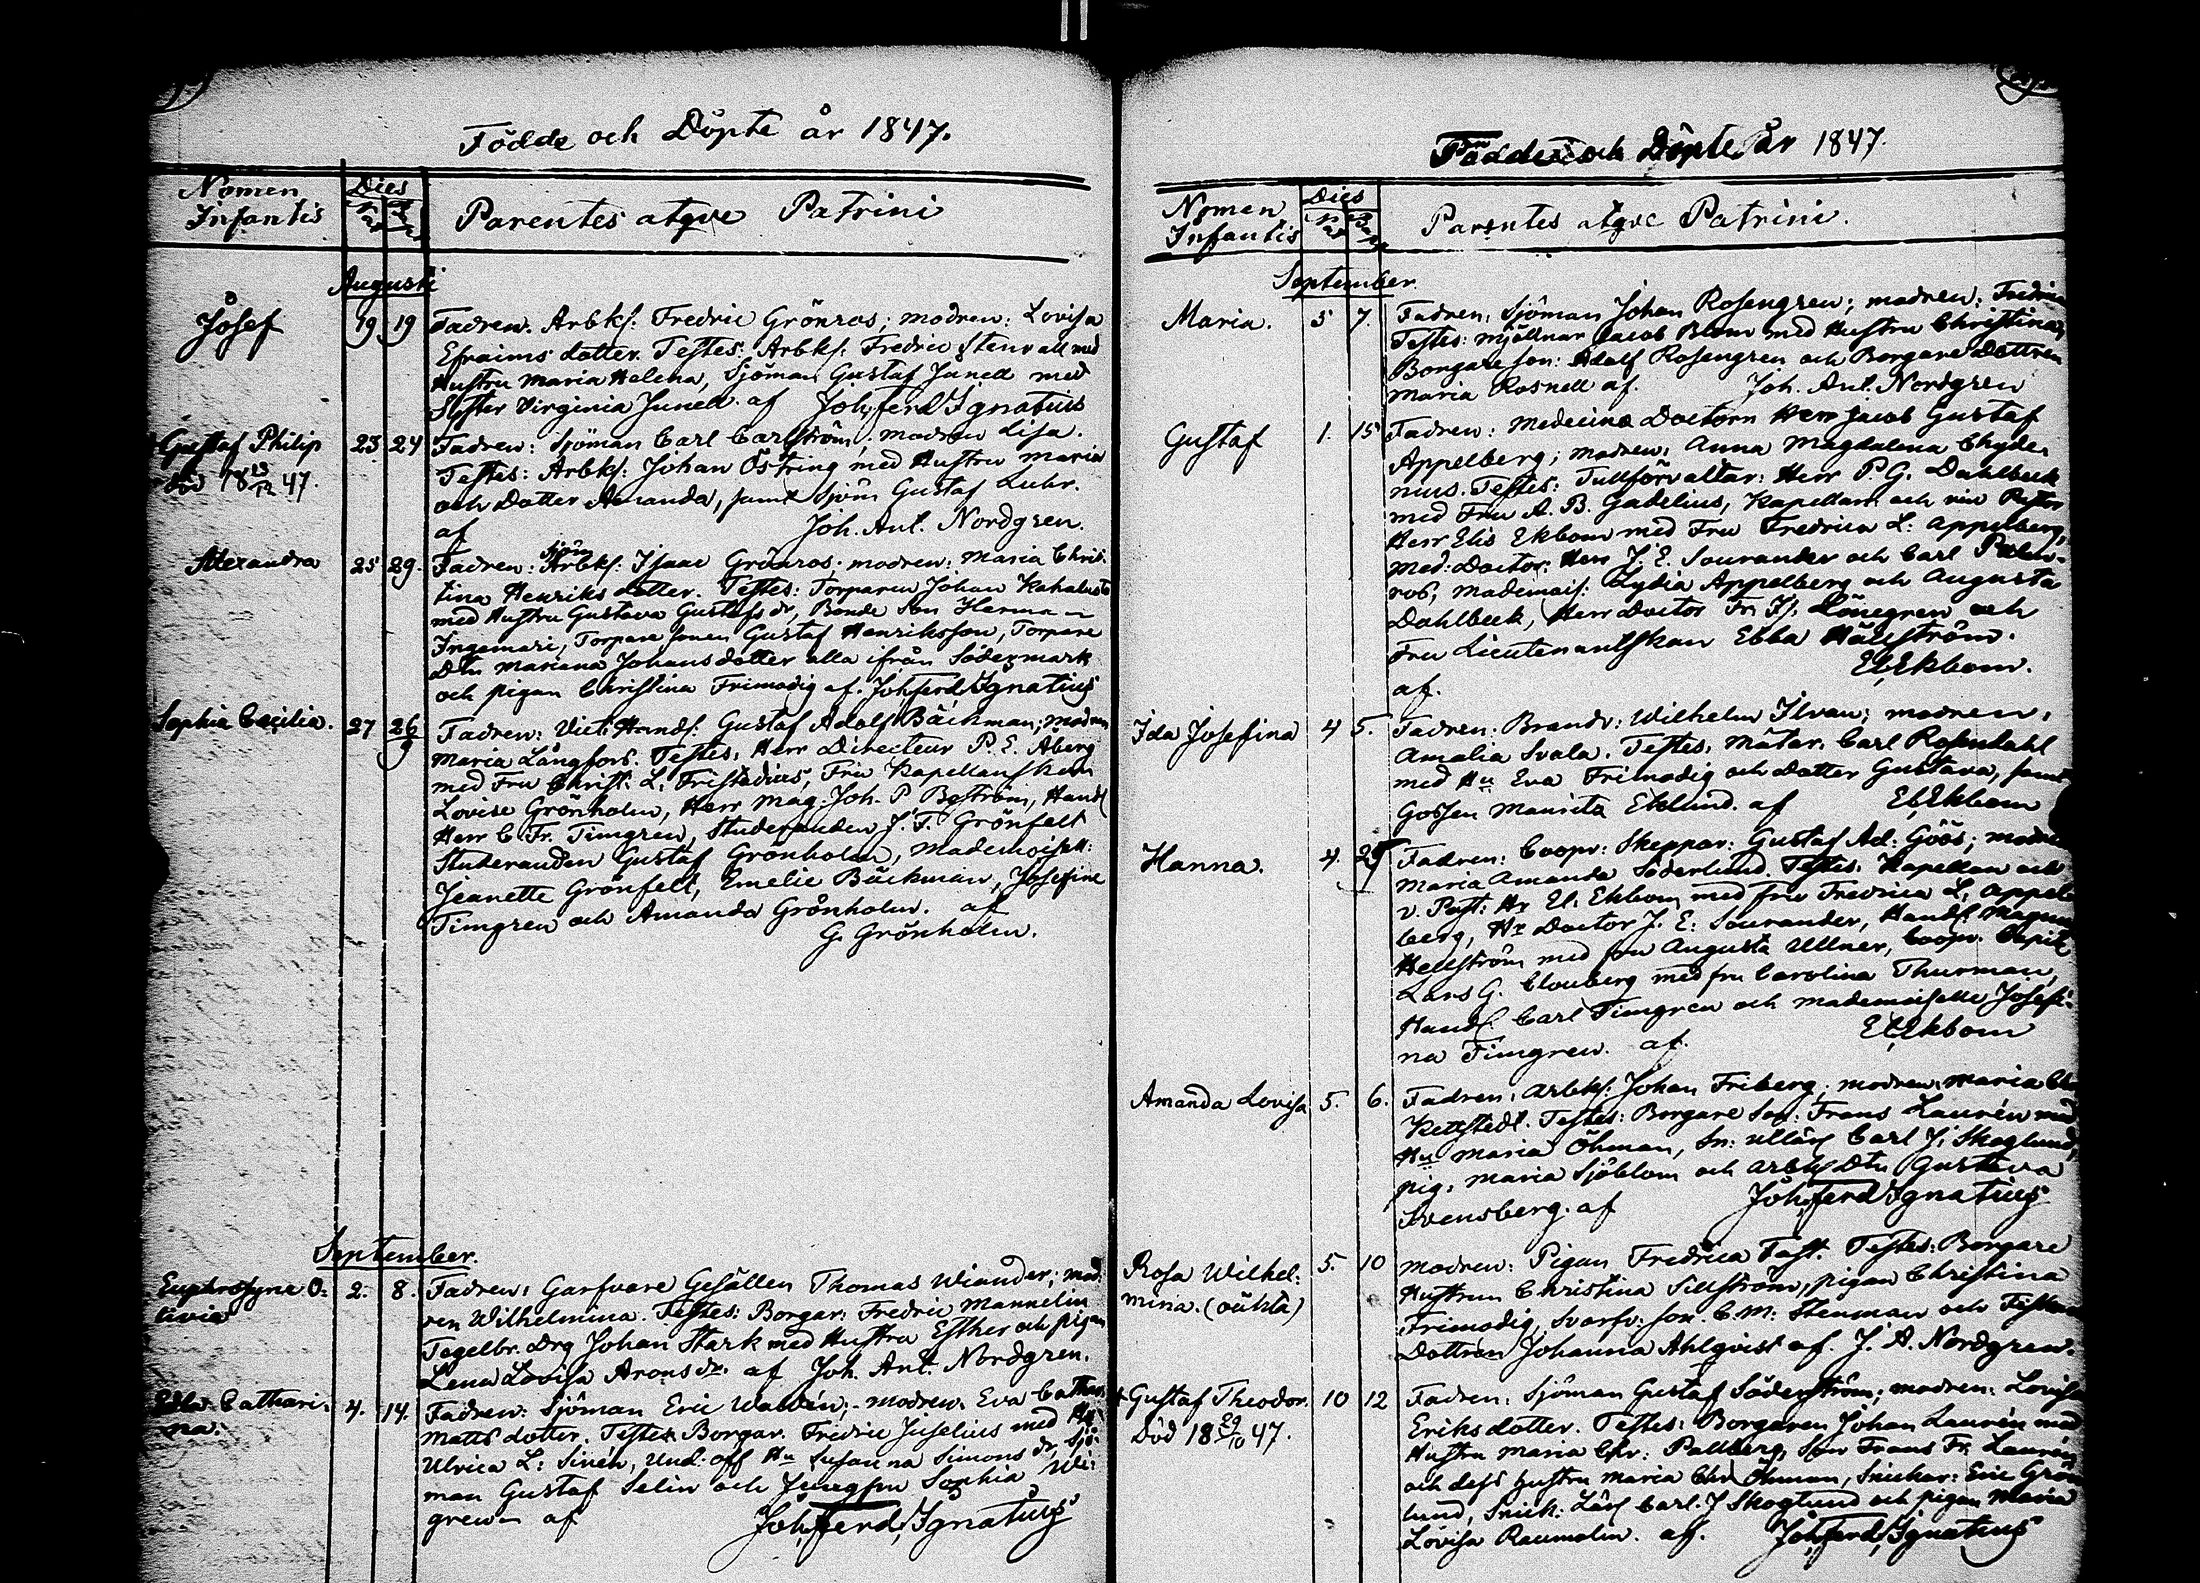 Födde och Döpte år 1847.
Nomen Infantis
Dies
Parentes atqve Patrini
Augusti
Josef 19 19 Fadren: Arbks: Fredric Grönros; modren: Lovisa
Efraims dotter. Testes: Arbks: Fredric Stenvall med
Hustru Maria Helena, Sjöman Gustaf Junell med
Syster Virginia Junell. af Joh. Ferd. Ignatius
Gustaf Philip 23 24 Fadren: Sjöman Carl Carlström; modren Lisa.
död 18 23/12 47. Testes: Arbks: Johan Östring med Hustru Maria
och Dotter Amanda, samt Sjöm Gustaf Luhr.
af Joh. Ant. Nordgren.
Alexandra 25 29. Fadren: Sjöm Arbks: Isaac Grönros; modren: Maria Chris-
tina Henriks dotter. Testes: Torparen Johan
med Hustru Gustava Gustafs dr, Bonde Son Herman
Ingemari, Torpare Sonen Gustaf Henriksson, Torpare
Dtn Mariana Johansdotter alla ifrån Södermark
och pigan Christina Frimodig af. Joh. Ferd. Ignatius
Sophia Cæcilia. 27 26/9 Fadren: Vict: Handl: Gustaf Adolf Bäckman; modren
Maria Långfors. Testes: Herr Directeur P. E. Åberg
med Fru Christ: L. Fristadius, Fru Kapellanskan
Lovise Grönholm, Herr Mag. Joh. P. Boström, Handl
Herr C. Fr. Timgren, Studeranden J. F. Grönfelt
Studeranden Gustaf Grönholm, Mademoisell:
Jeanette Grönfelt, Emelie Bäckman, Josefine
Timgren och Amanda Grönholm. af
G. Grönholm.
September.
Euphrosyne O- 2. 8. Fadren: Garfvare Gesällen Thomas Wiander; mod-
livia ren Wilhelmina. Testes: Borgar: Fredric Mannelin
Tegelbr. Drg Johan Stark med Hustru Esther och pigan
Lena Lovisa Arons dr. af Joh. Ant. Nordgren.
Edla Cathari- 4. 14. Fadren: Sjöman Eric Waldén; modren: Eva Cathar:
na. Matts dotter. Testes: Borgar. Fredric Juselius med Hu
Ulrica L: Sinén, Und: off Hu Susanna Simons dr, Sjö-
man Gustaf Selin och Jungfru Sophia Wi-
gren af Joh. Ferd. Ignatius
Födde och Döpte År 1847.
Nomen Infantis
Dies
Parentes atqve Patrini.
September
Maria. 5 7. Fadren: Sjöman Johan Rosengren; modren: Fredrica
Testes: Mjöllnar Jacob Blom med Hustru Christina,
Borgare Son: Adolf Rosengren och Borgare Dottren
Maria Rosnell af. Joh. Ant. Nordgren
Gustaf 1. 15 Fadren: Medecine Doctorn Herr Jacob Gustaf
Appelberg; modren: Anna Magdalena Chyde-
nius. Testes: Tullförvaltar: Herr P. G. Dahlbeck
med Fru A. B. Gadelius, Kapellan och vice Pastor
Herr Elis Ekbom med Fru Fredrica L: Appelberg,
Med: Doctor: Herr J. E. Sourander och Carl
ros, Mademois: Lydia Appelberg och Augusta
Dahlbeck, Herr Doctor Fr. Js. Lönegren och
Fru Lieutenantskan Ebba Hällström.
af. El. Ekbom.
Ida Josefina 4 5. Fadren: Brandv: Wilhelm Ilvan; modren:
Amalia Svala. Testes: Mätar: Carl Rosendahl
med Hu Eva Frimodig och Dotter Gustava, samt
Gossen Maurits Eklund. af El. Ekbom
Hanna. 4. Fadren: Coopv: Skeppar: Gustaf Ad: Göös; modren
Maria Amanda Söderlund. Testes: Kapellan och
v. Past: Hr El. Ekbom med fru Fredrica L: Appel-
berg, Hr Doctor J. E: Sourander, Handl. Magnus
Hellström med fru Augusta Ullner, Coopv: Capit
Lars G. Clouberg med fru Carolina Thurman,
Handl. Carl Timgren och mademoiselle Josefi-
na Timgren. af. El. Ekbom
Amanda Lovisa 5. 6. Fadren: Arbks: Johan Friberg; modren: Maria
Testes: Borgare Son: Frans Laurén med
Hu Maria Öhman, Sn: Carl J. Skoglund,
pig: Maria Sjöblom och Arbks Dtr Gustava
Svensberg. af Joh. Ferd. Ignatius
Rosa Wilhel- 5. 10 Modren: Pigan Fredrica Fast. Testes: Borgare
mina. (oäkta) Hustrun Christina Sillström, pigan Christina
Frimodig, Svarfv: Son. C. M: Stenman och
Dottren Johanna Ahlqvist af. J. A. Nordgren.
Gustaf Theodor. 10 12 Fadren: Sjöman Gustaf Söderström; modren: Lovisa
Död 18 29/10 47. Eriks dotter. Testes: Borgaren Johan Laurén med
Hustru Maria Chr: Pallberg, Son Frans Fr. Laurén
och dess hustru Maria Chr Öhman, Snickar: Eric Grön-
lund, Snick: Lärl Carl. J Skoglund och pigan Maria
Lovisa Raumolin. af. Joh. Ferd. Ignatius